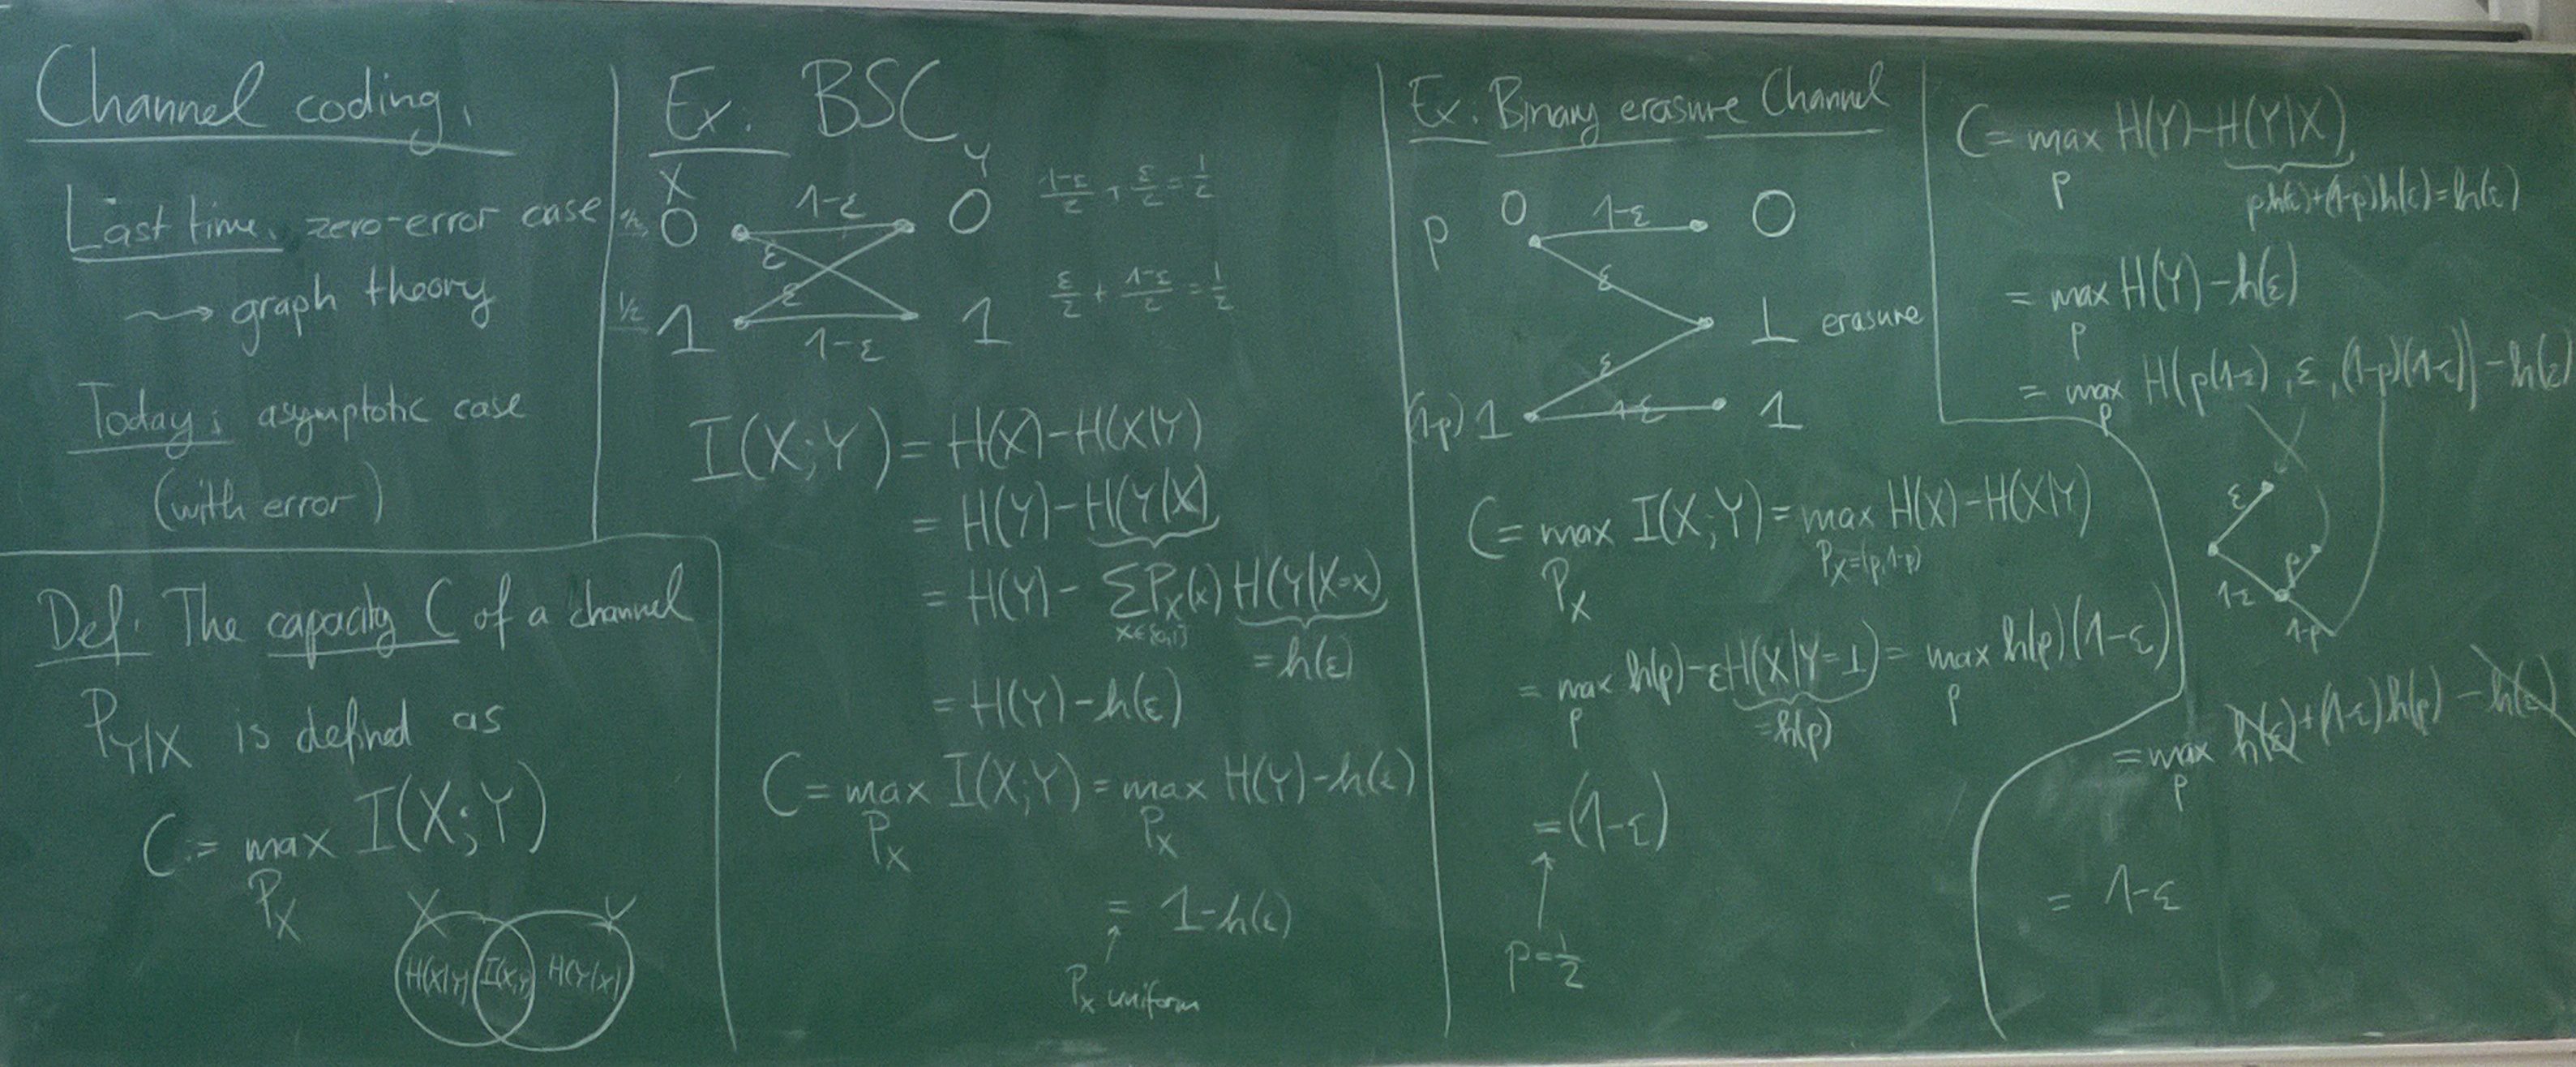 Channel coding.
Last time. zero-error case
⇝ graph theory
Today: asymptotic case
(with error)
Def: The capacity C of a channel
P_{Y|X} is defined as
C := max_{P_X} I(X;Y)
X Y
H(X|Y) I(X;Y) H(Y|X)
Ex: BSC
X Y
1/2 0 1-ε 0 (1-ε)/2 + ε/2 = 1/2
ε
ε
1/2 1 1-ε 1 ε/2 + (1-ε)/2 = 1/2
I(X;Y) = H(X)-H(X|Y)
= H(Y)-H(Y|X)
= H(Y) - Σ_{x∈{0,1}} P_X(x) H(Y|X=x)
= h(ε)
= H(Y)-h(ε)
C = max_{P_X} I(X;Y) = max_{P_X} H(Y)-h(ε)
= 1-h(ε)
↑
P_X uniform
Ex: Binary erasure Channel
p 0 1-ε 0
ε
⊥ erasure
ε
(1-p) 1 1-ε 1
C = max_{P_X} I(X;Y) = max_{P_X=(p,1-p)} H(X)-H(X|Y)
= max_p h(p)-εH(X|Y=⊥) = max_p h(p)(1-ε)
=h(p)
= (1-ε)
↑
p=1/2
C = max_p H(Y)-H(Y|X)
p h(ε)+(1-p)h(ε)=h(ε)
= max_p H(Y)-h(ε)
= max_p H(p(1-ε), ε, (1-p)(1-ε))-h(ε)
ε
p
1-ε
1-p
= max_p h(ε)+(1-ε)h(p)-h(ε)
= 1-ε